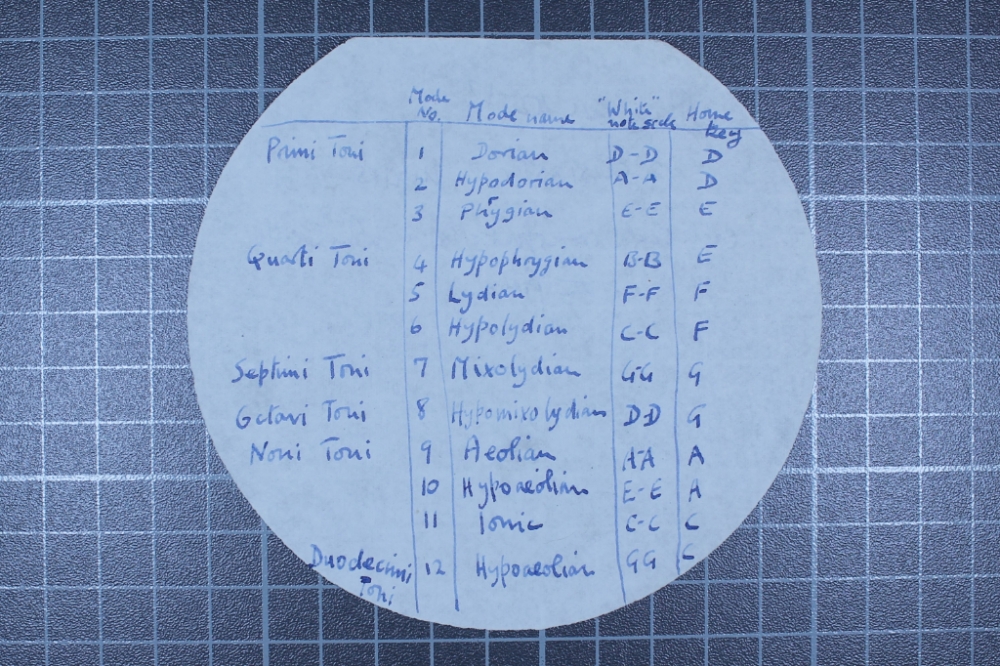 Mode No. Mode name "White" note scale Home key
Primi Toni 1 Dorian D-D D
2 Hypodorian A-A D
3 Phrygian E-E E
Quarti Toni 4 Hypophrygian B-B E
5 Lydian F-F F
6 Hypolydian C-C F
Septimi Toni 7 Mixolydian G-G G
Octavi Toni 8 Hypomixolydian D-D G
Noni Toni 9 Aeolian A-A A
10 Hypoaeolian E-E A
11 Ionic C-C C
Duodecimi Toni 12 Hypoaeolian GG C